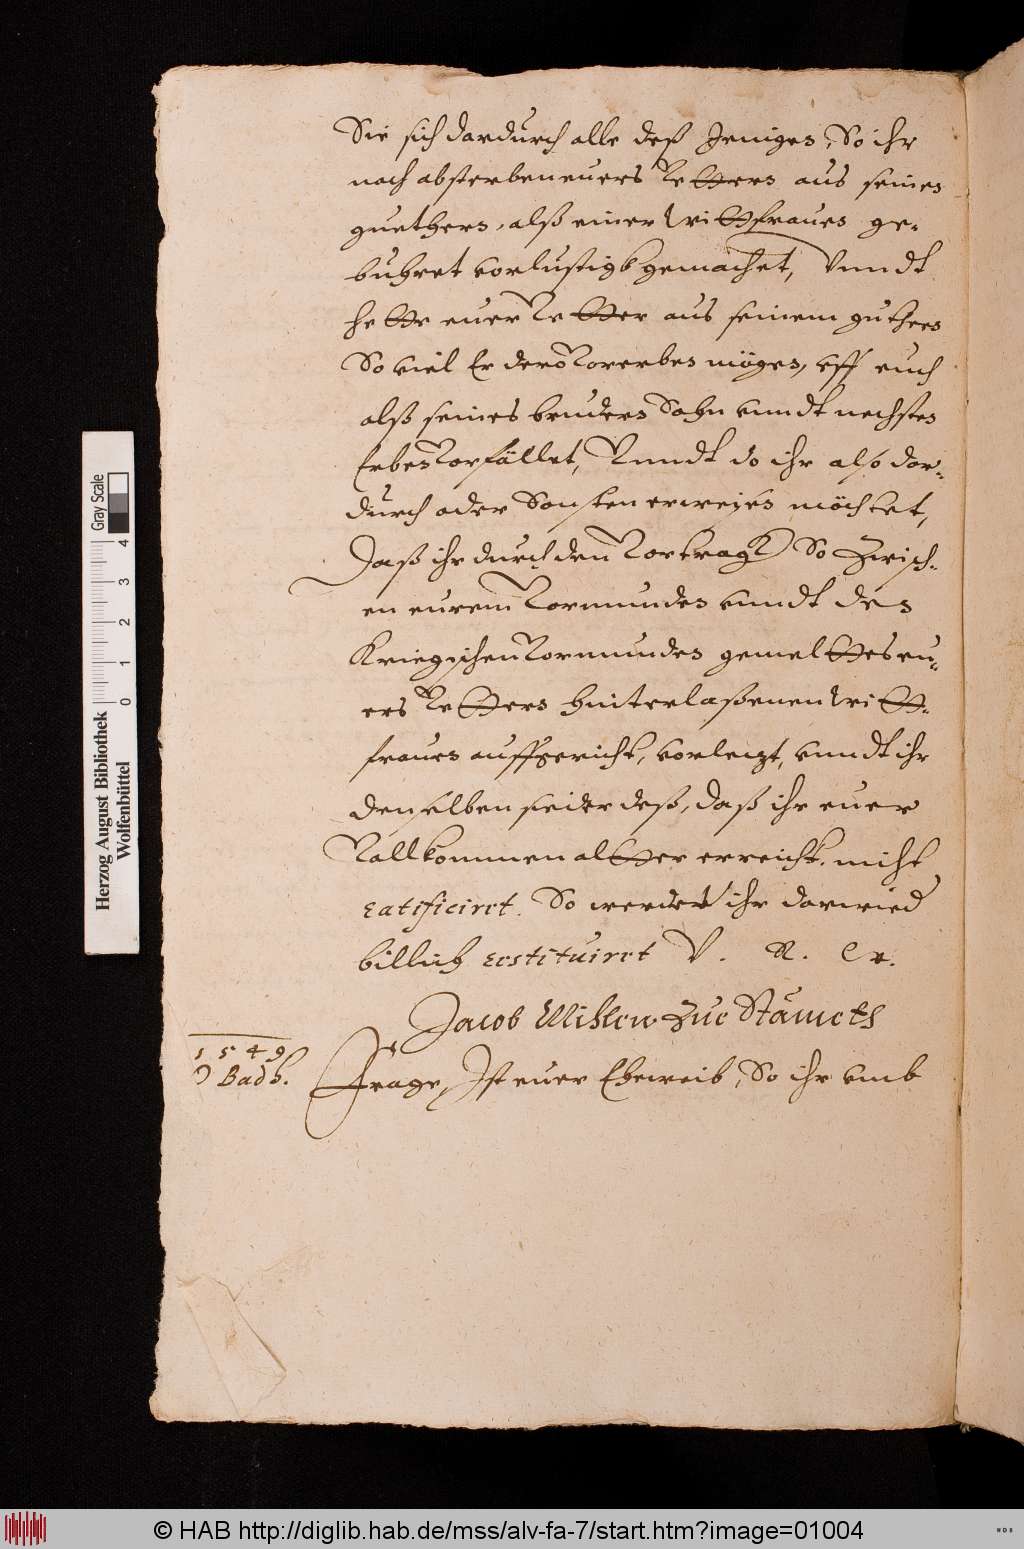 Sie sich dardurch alle deß Jenigen, So ihr
nach absterben euers Vettern aus seinen
guethern, alß einer Wittfrauen ge-
buhret vorlustigk gemachet, Vnndt
hette euer Vetter aus seinem guthern
So viel Er dero Vorerben mögen, vff euch
alß seines bruders Sohn vnndt nechsten
Erben Vorfället, Vnndt do ihr also dar-
durch oder Sonsten erweisen möchtet,
Daß ihr durch den Vortragk So Zwisch-
en eurem Vormunden vnndt des
Kriegischen Vormunden gemeltes eu-
ers Vettern hinterlaßenen Witt-
frauen auffgericht, vorleczt, vnndt ihr
denselben sieder deß, daß ihr euer
Vollkommen alter erreicht, nicht
ratificiret. So werdet ihr darwied
billich restituiret V. R. W.
Jacob Zue
1549
Badh.
Frage, Ist euer Eheweib, So ihr vmb
Herzog August Bibliothek
Wolfenbüttel
0 1 2 3 4
Gray Scale
© HAB http://diglib.hab.de/mss/alv-fa-7/start.htm?image=01004